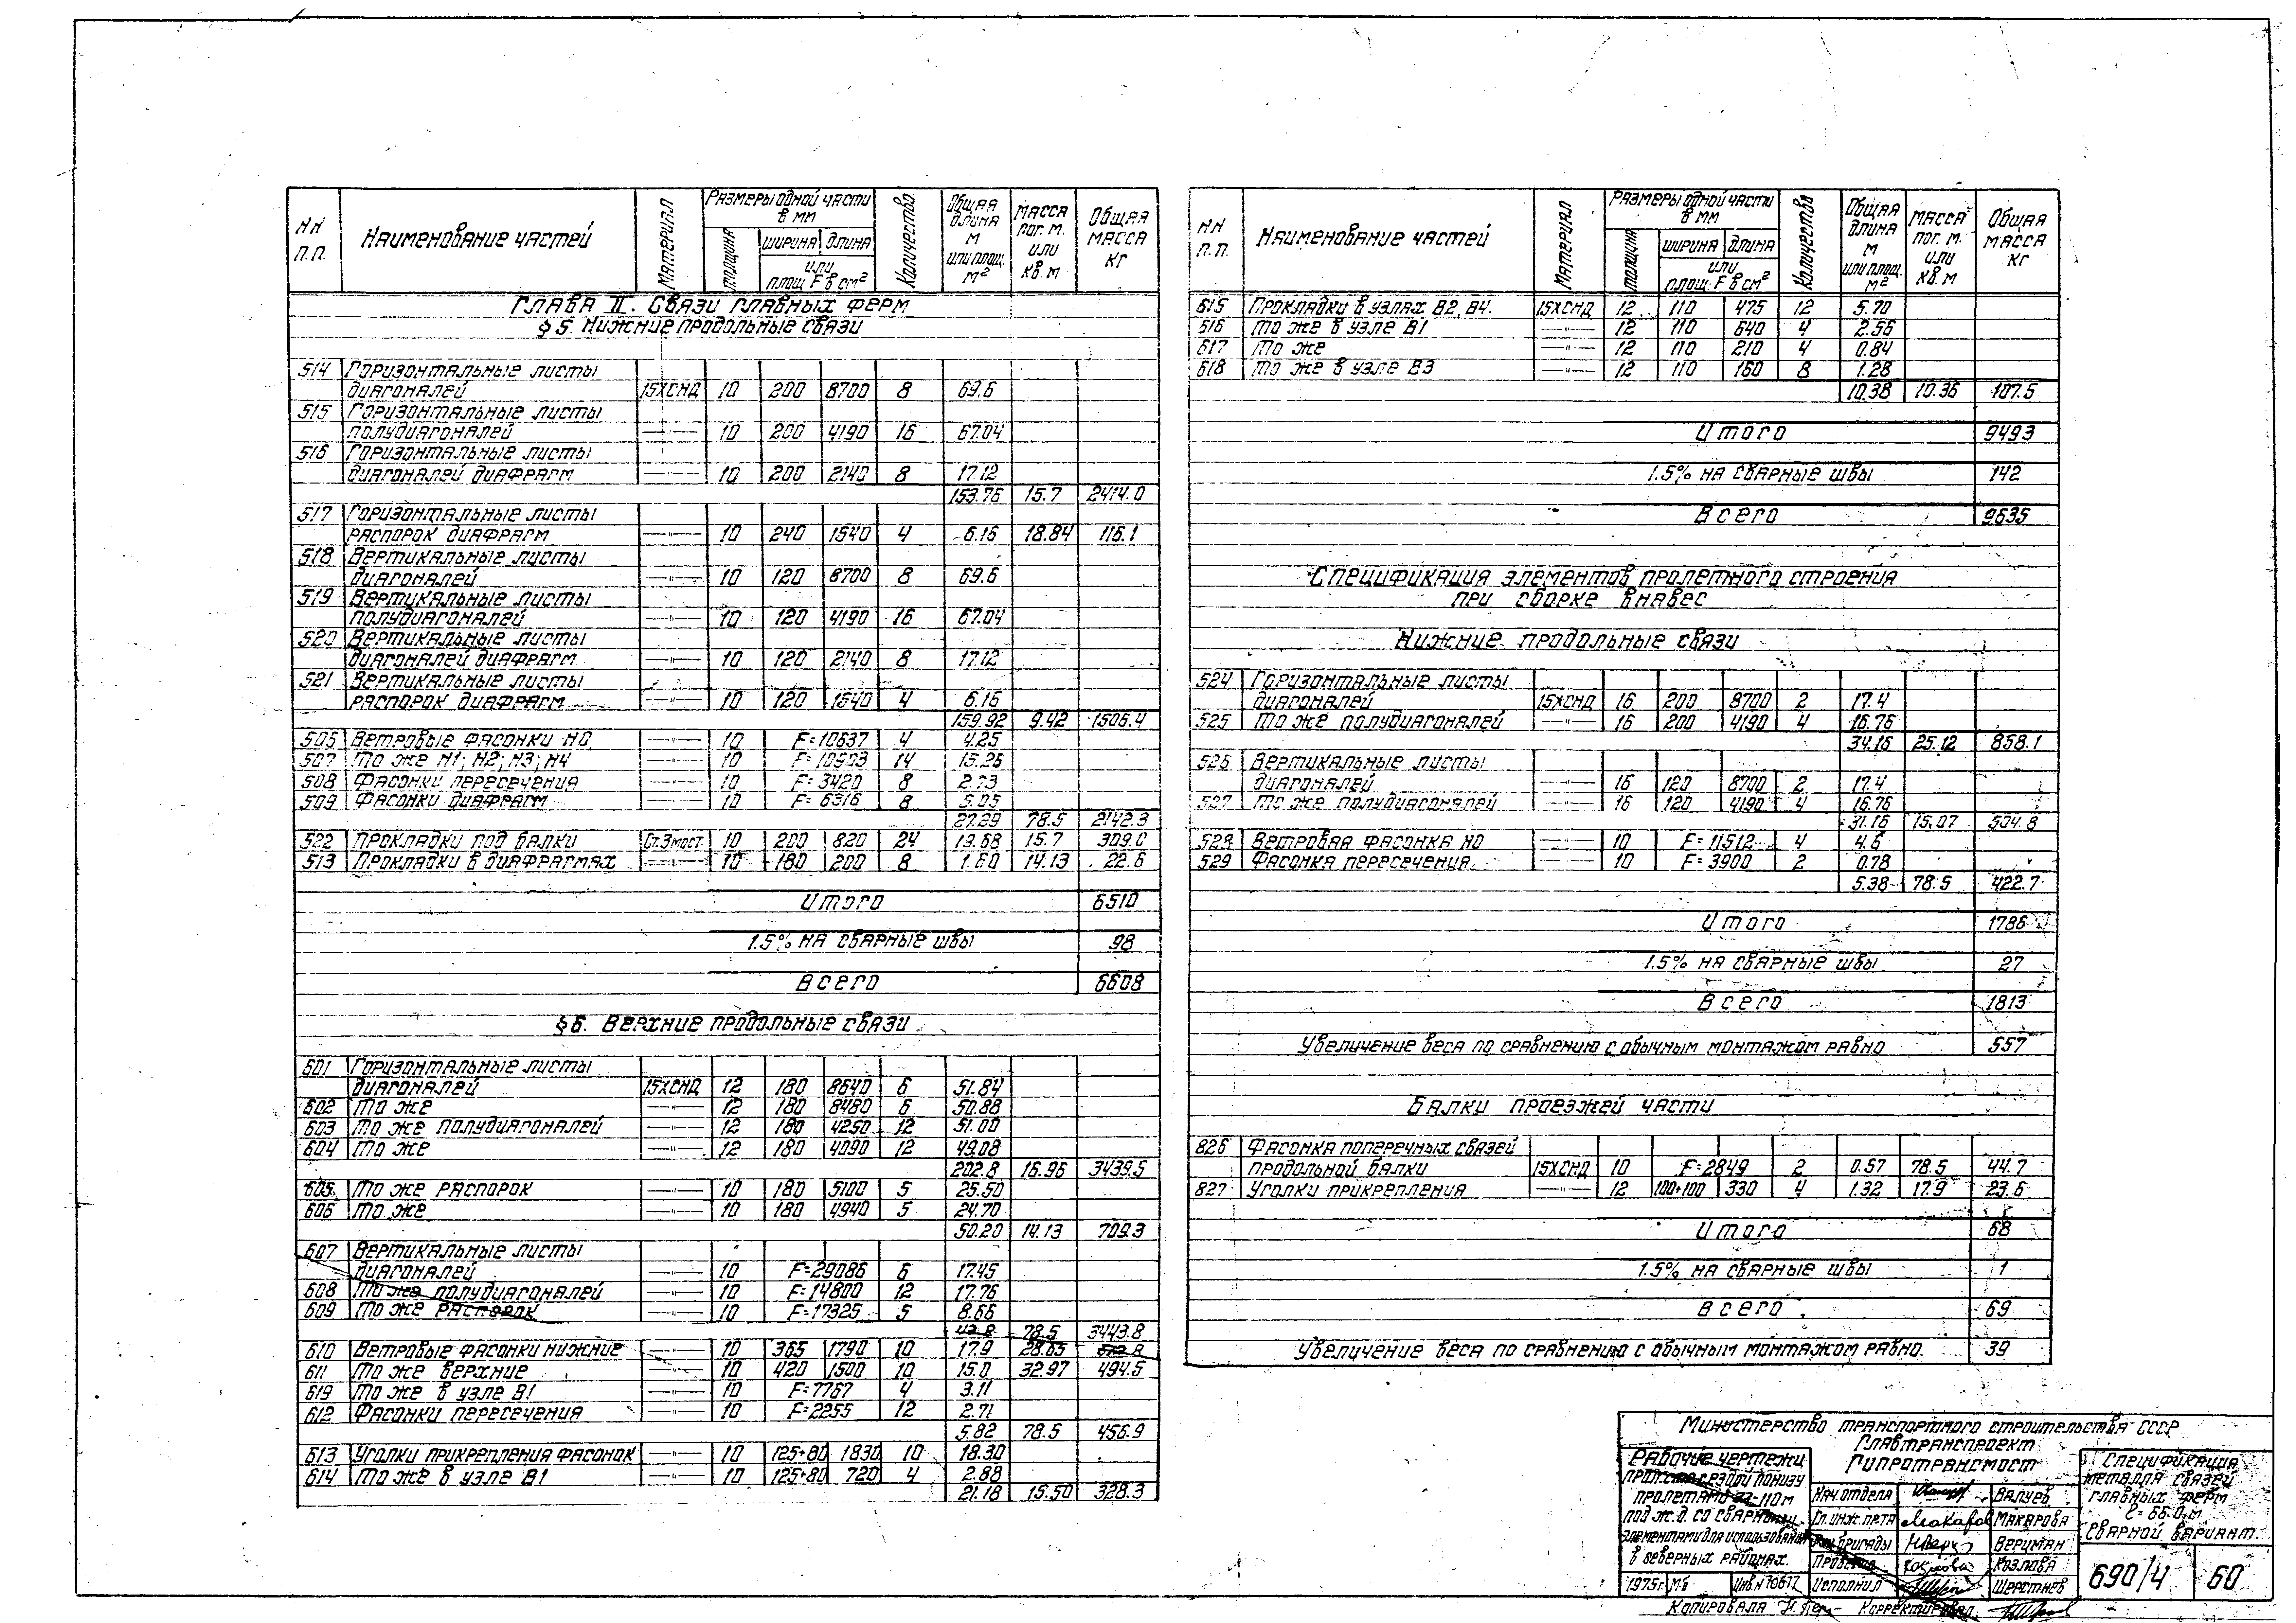 NN п.п. Наименование частей Материал Размеры одной части в мм толщина ширина длина или площ. F в см² Количество Общая длина м или площ. м² Масса пог. м. или кв. м Общая масса кг
Глава II. Связи главных ферм
§ 5. Нижние продольные связи
514 Горизонтальные листы
диагоналей 15ХСНД 10 200 8700 8 69.6
515 Горизонтальные листы
полудиагоналей —"— 10 200 4190 16 67.04
516 Горизонтальные листы
диагоналей диафрагм —"— 10 200 2140 8 17.12
153.76 15.7 2414.0
517 Горизонтальные листы
распорок диафрагм —"— 10 240 1540 4 6.16 18.84 116.1
518 Вертикальные листы
диагоналей —"— 10 120 8700 8 69.6
519 Вертикальные листы
полудиагоналей —"— 10 120 4190 16 67.04
520 Вертикальные листы
диагоналей диафрагм —"— 10 120 2140 8 17.12
521 Вертикальные листы
распорок диафрагм —"— 10 120 1540 4 6.16
159.92 9.42 1506.4
506 Ветровые фасонки Н0 —"— 10 F=10637 4 4.25
507 То же Н1; Н2; Н3; Н4 —"— 10 14 15.26
508 Фасонки пересечения —"— 10 F=3420 8 2.73
509 Фасонки диафрагм —"— 10 F=6316 8 5.05
27.29 78.5 2142.3
522 Прокладки под балки Ст.3мост. 10 200 820 24 19.68 15.7 309.0
513 Прокладки в диафрагмах —"— 10 180 200 8 1.60 14.13 22.6
Итого 6510
1.5% на сварные швы 98
Всего 6608
§ 6. Верхние продольные связи
601 Горизонтальные листы
диагоналей 15ХСНД 12 180 8640 6 51.84
602 То же —"— 12 180 8480 6 50.88
603 То же полудиагоналей —"— 12 180 4250 12 51.00
604 То же —"— 12 180 4090 12 49.08
202.8 16.96 3439.5
605 То же распорок —"— 10 180 5100 5 25.50
606 То же —"— 10 180 4940 5 24.70
50.20 14.13 709.3
607 Вертикальные листы
диагоналей —"— 10 F=29086 6 17.45
608 То же полудиагоналей —"— 10 F=14800 12 17.76
609 То же распорок —"— 10 F=17325 5 8.66
43.8 78.5 3443.8
610 Ветровые фасонки нижние —"— 10 365 1790 10 17.9 28.65
611 То же верхние —"— 10 420 1500 10 15.0 32.97 494.5
619 То же в узле В1 —"— 10 F=7767 4 3.11
612 Фасонки пересечения —"— 10 F=2255 12 2.71
5.82 78.5 456.9
613 Уголки прикрепления фасонок —"— 10 125+80 1830 10 18.30
614 То же в узле В1 —"— 10 125+80 720 4 2.88
21.18 15.50 328.3
NN п.п. Наименование частей Материал Размеры одной части в мм толщина ширина длина или площ. F в см² Количество Общая длина м или площ. м² Масса пог. м. или кв. м Общая масса кг
615 Прокладки в узлах В2, В4. 15ХСНД 12 110 475 12 5.70
616 То же в узле В1 —"— 12 110 640 4 2.56
617 То же —"— 12 110 210 4 0.84
618 То же в узле В3 —"— 12 110 160 8 1.28
10.38 10.36 107.5
Итого 9493
1.5% на сварные швы 142
Всего 9635
Спецификация элементов пролетного строения
при сборке внавес
Нижние продольные связи
524 Горизонтальные листы
диагоналей 15ХСНД 16 200 8700 2 17.4
525 То же полудиагоналей —"— 16 200 4190 4 16.76
34.16 25.12 858.1
526 Вертикальные листы
диагоналей —"— 16 120 8700 2 17.4
527 То же полудиагоналей —"— 16 120 4190 4 16.76
31.16 15.07 504.8
528 Ветровая фасонка Н0 —"— 10 F=11512 4 4.6
529 Фасонка пересечения —"— 10 F=3900 2 0.78
5.38 78.5 422.7
Итого 1786
1.5% на сварные швы 27
Всего 1813
Увеличение веса по сравнению с обычным монтажом равно 557
Балки проезжей части
826 Фасонка поперечных связей
продольной балки 15ХСНД 10 F=2849 2 0.57 78.5 44.7
827 Уголки прикрепления —"— 12 100+100 330 4 1.32 17.9 23.6
Итого 68
1.5% на сварные швы 1
Всего 69
Увеличение веса по сравнению с обычным монтажом равно 39
Министерство транспортного строительства СССР
Главтранспроект
Гипротрансмост
Рабочие чертежи
с ездой понизу
пролетами 33-110 м
под ж.д. со сварными
элементами для использования
в северных районах
1975г. М-б Инв.N 70617
Нач. отдела Валуев
Гл. инж. пр-та Макарова
Рук. бригады Верцман
Проверил Козлова
Исполнил Шерстнев
Спецификация
металла связей
главных ферм
ℓ=66.0 м
Сварной вариант.
690/4 60
Копировала Корректировал